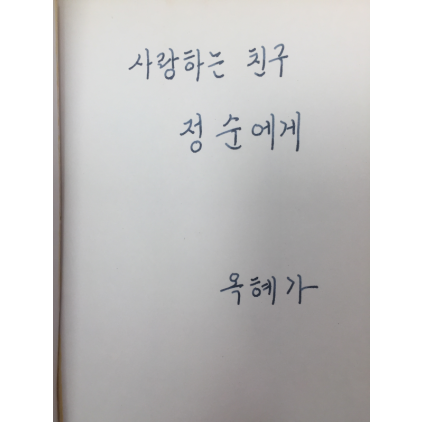 사랑하는 친구
정순에게
옥혜가